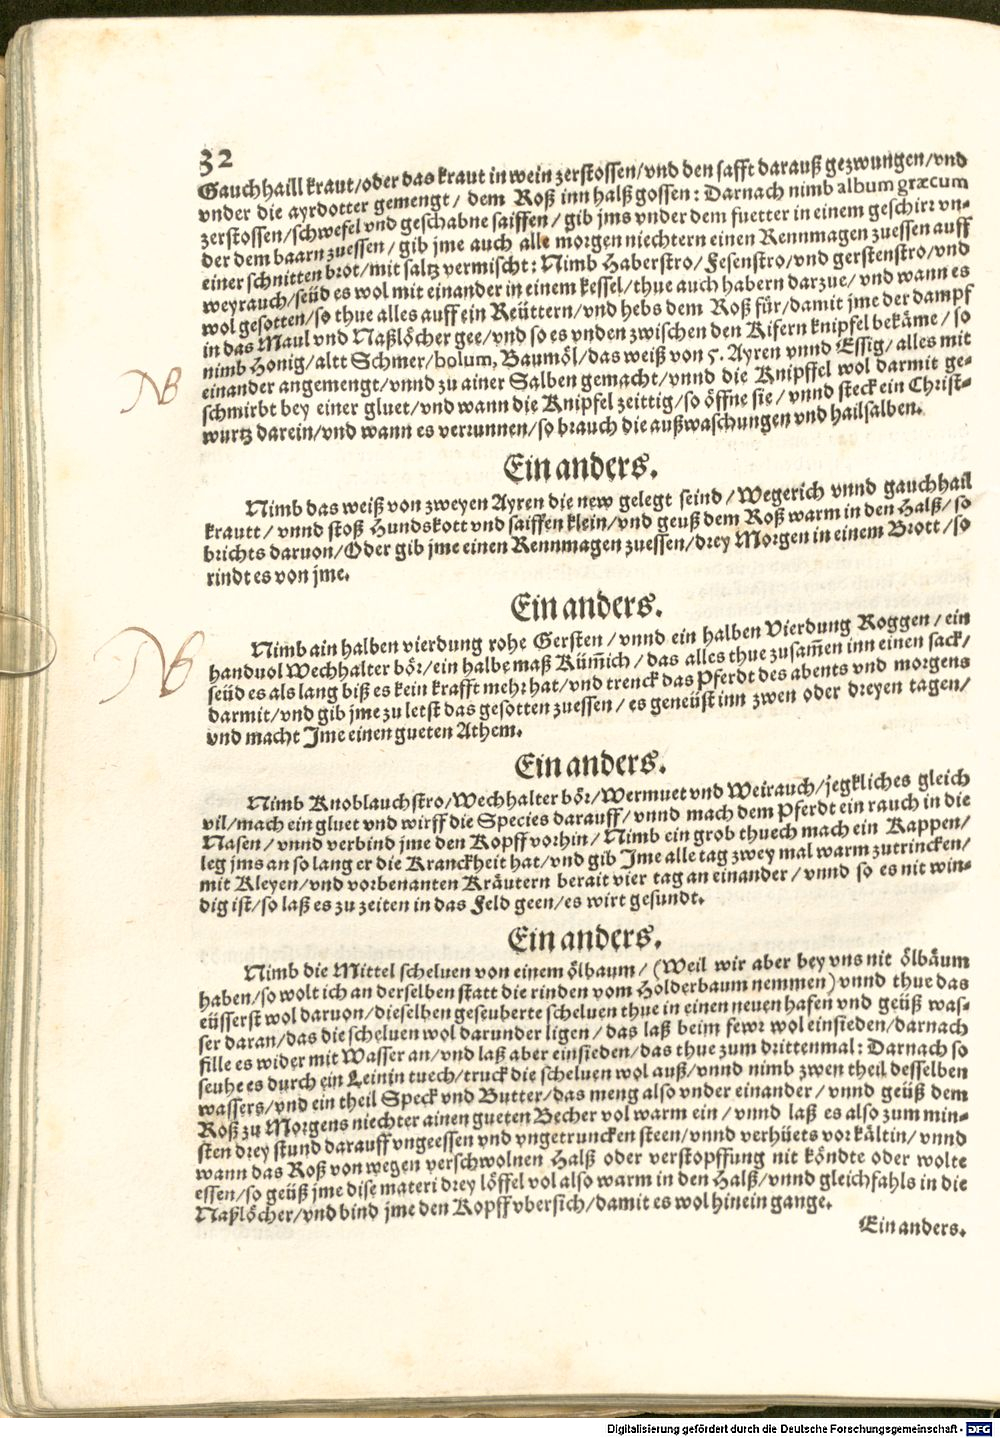 32
Gauchhaill kraut/oder das kraut in wein zerstossen/vnd den safft darauß gezwungen/vnd
vnder die ayrdotter gemengt/ dem Roß inn halß gossen: Darnach nimb album græcum
zerstossen/schwefel vnd geschabne saiffen/ gib jms vnder dem fuetter in einem geschirr vn-
der dem baarn zuessen/ gib jme auch alle morgen niechtern einen Rennmagen zuessen auff
einer schnitten brot/mit saltz vermischt: Nimb Haberstro/ Fesenstro/vnd gerstenstro/vnd
weyrauch/seüd es wol mit einander in einem kessel/thue auch habern darzue/ vnd wann es
wol gesotten/so thue alles auff ein Reüttern/vnd hebs dem Roß für/damit jme der dampf
in das Maul vnd Naßlöcher gee/vnd so es vnden zwischen den Kifern knipfel bekäme/ so
nimb Honig/altt Schmer/bolum, Baumöl/das weiß von 5. Ayren vnnd Essig/ alles mit
einander angemengt/vnnd zu ainer Salben gemacht/vnnd die Knipffel wol darmit ge-
NB
schmirbt bey einer gluet/vnd wann die Knipfel zeittig/so öffne sie/ vnnd steck ein Christ-
wurtz darein/vnd wann es verrunnen/so brauch die außwaschungen vnd hailsalben.
Ein anders.
Nimb das weiß von zweyen Ayren die new gelegt seind/Wegerich vnnd gauchhail
krautt/ vnnd stoß Hundskott vnd saiffen klein/vnd geuß dem Roß warm in den Halß/so
brichts daruon/Oder gib jme einen Rennmagen zuessen/drey Morgen in einem Brott/so
rindt es von jme.
Ein anders.
Nimb ain halben vierdung rohe Gersten/vnnd ein halben Vierdung Roggen/ein
NB
handuol Wechhalter bör/ein halbe maß Küm̃ich/das alles thue zusam̃en inn einen sack/
seüd es als lang biß es kein krafft mehr hat/vnd trenck das Pferdt des abents vnd morgens
darmit/vnd gib jme zu letst das gesotten zuessen/ es geneüst inn zwen oder dreyen tagen/
vnd macht Jme einen gueten Athem.
Ein anders.
Nimb Knoblauchstro/Wechhalter bör/Wermuet vnd Weirauch/jegkliches gleich
vil/mach ein gluet vnd wirff die Species darauff/vnnd mach dem Pferdt ein rauch in die
Nasen/ vnnd verbind jme den Kopff vorhin/ Nimb ein grob thuech mach ein Kappen/
leg jms an so lang er die Kranckheit hat/vnd gib Jme alle tag zwey mal warm zutrincken/
mit Kleyen/vnd vorbenanten Kräutern berait vier tag an einander/ vnnd so es nit win-
dig ist/so laß es zu zeiten in das Feld geen/es wirt gesundt.
Ein anders.
Nimb die Mittel scheluen von einem ölbaum/ (Weil wir aber bey vns nit ölbäum
haben/so wolt ich an derselben statt die rinden vom Holderbaum nemmen) vnnd thue das
eüsserst wol daruon/dieselben geseuberte scheluen thue in einen neuen hafen vnd geüß was-
ser daran/das die scheluen wol darunder ligen/das laß beim fewr wol einsieden/darnach
fille es wider mit Wasser an/vnd laß aber einsieden/das thue zum drittenmal: Darnach so
seuhe es durch ein Leinin tuech/truck die scheluen wol auß/vnnd nimb zwen theil desselben
wassers/vnd ein theil Speck vnd Butter/das meng also vnder einander/ vnnd geüß dem
Roß zu Morgens niechter ainen gueten Becher vol warm ein/ vnnd laß es also zum min-
sten drey stund darauff vngeessen vnd vngetruncken steen/vnnd verhüets vor kältin/ vnnd
wann das Roß von wegen verschwolnen Halß oder verstopffung nit köndte oder wolte
essen/so geüß jme dise materi drey löffel vol also warm in den Halß/vnnd gleichfahls in die
Naßlöcher/vnd bind jme den Kopff vbersich/damit es wol hinein gange.
Ein anders.
Digitalisierung gefördert durch die Deutsche Forschungsgemeinschaft - DFG